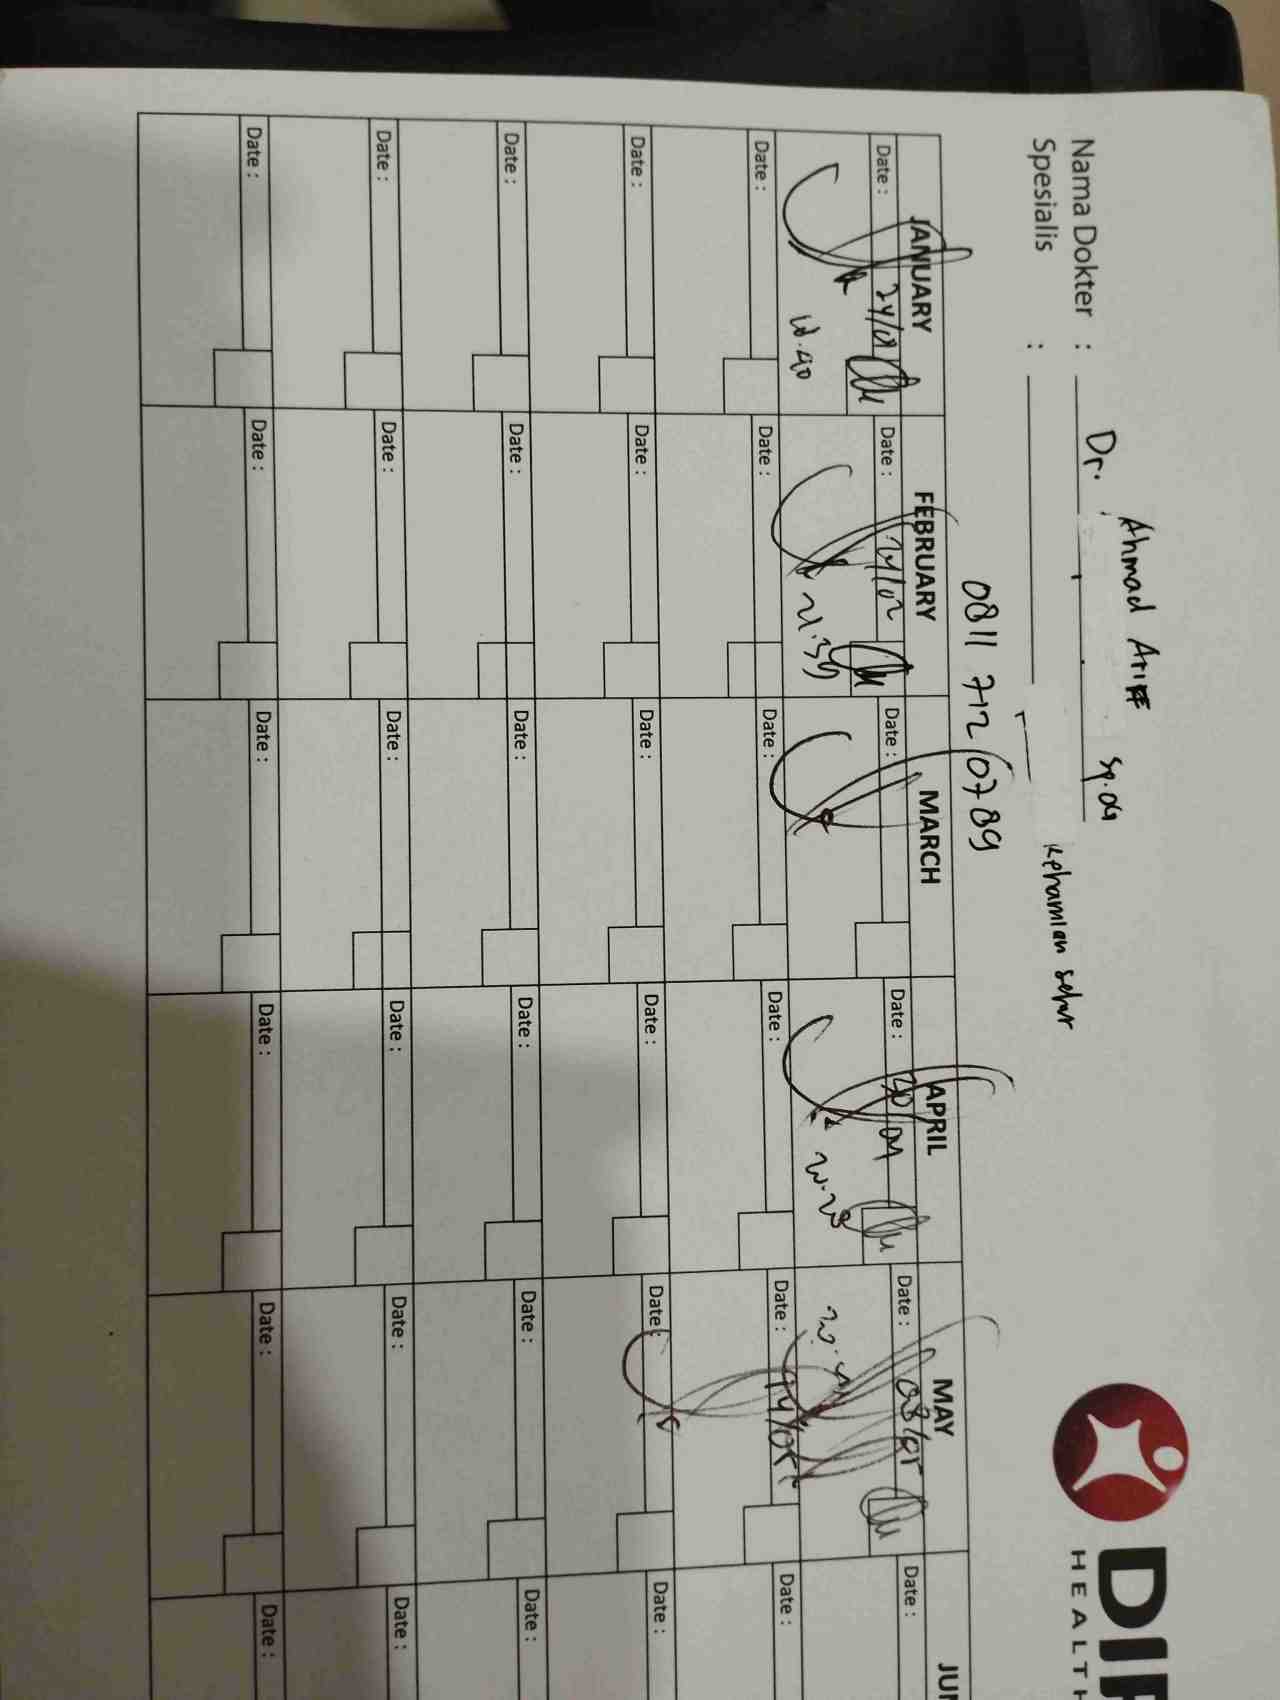 Nama Dokter : Dr. Ahmad Arif Sp.OG
Spesialis :
kehamilan sehat
0811 712 0789
JANUARY FEBRUARY MARCH APRIL MAY JUN
Date : 24/01 Date : 24/02 Date : Date : 30/04 Date : 08/05 Date :
21.39 20.20
Date : Date : Date : Date : Date : 14/05 Date :
Date : Date : Date : Date : Date : Date :
Date : Date : Date : Date : Date : Date :
Date : Date : Date : Date : Date : Date :
Date : Date : Date : Date : Date : Date :
HEALTH